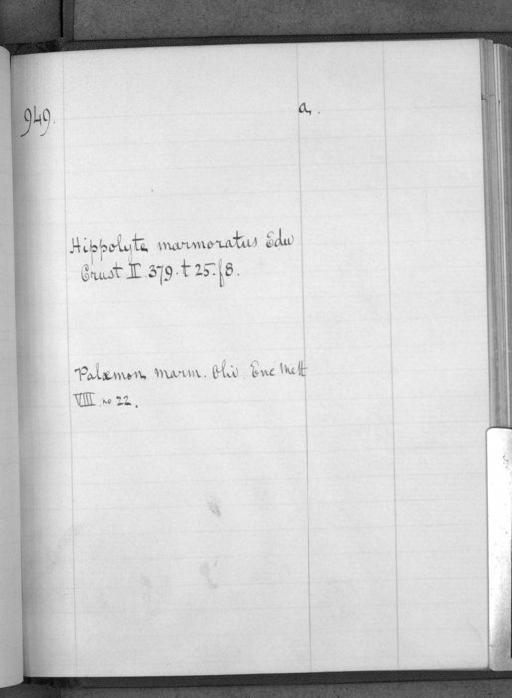 949.
a.
Hippolyte marmoratus Edw
Crust II 379. t 25. f 8.
Palæmon marm. Oliv. Enc Meth
VIII no 22.